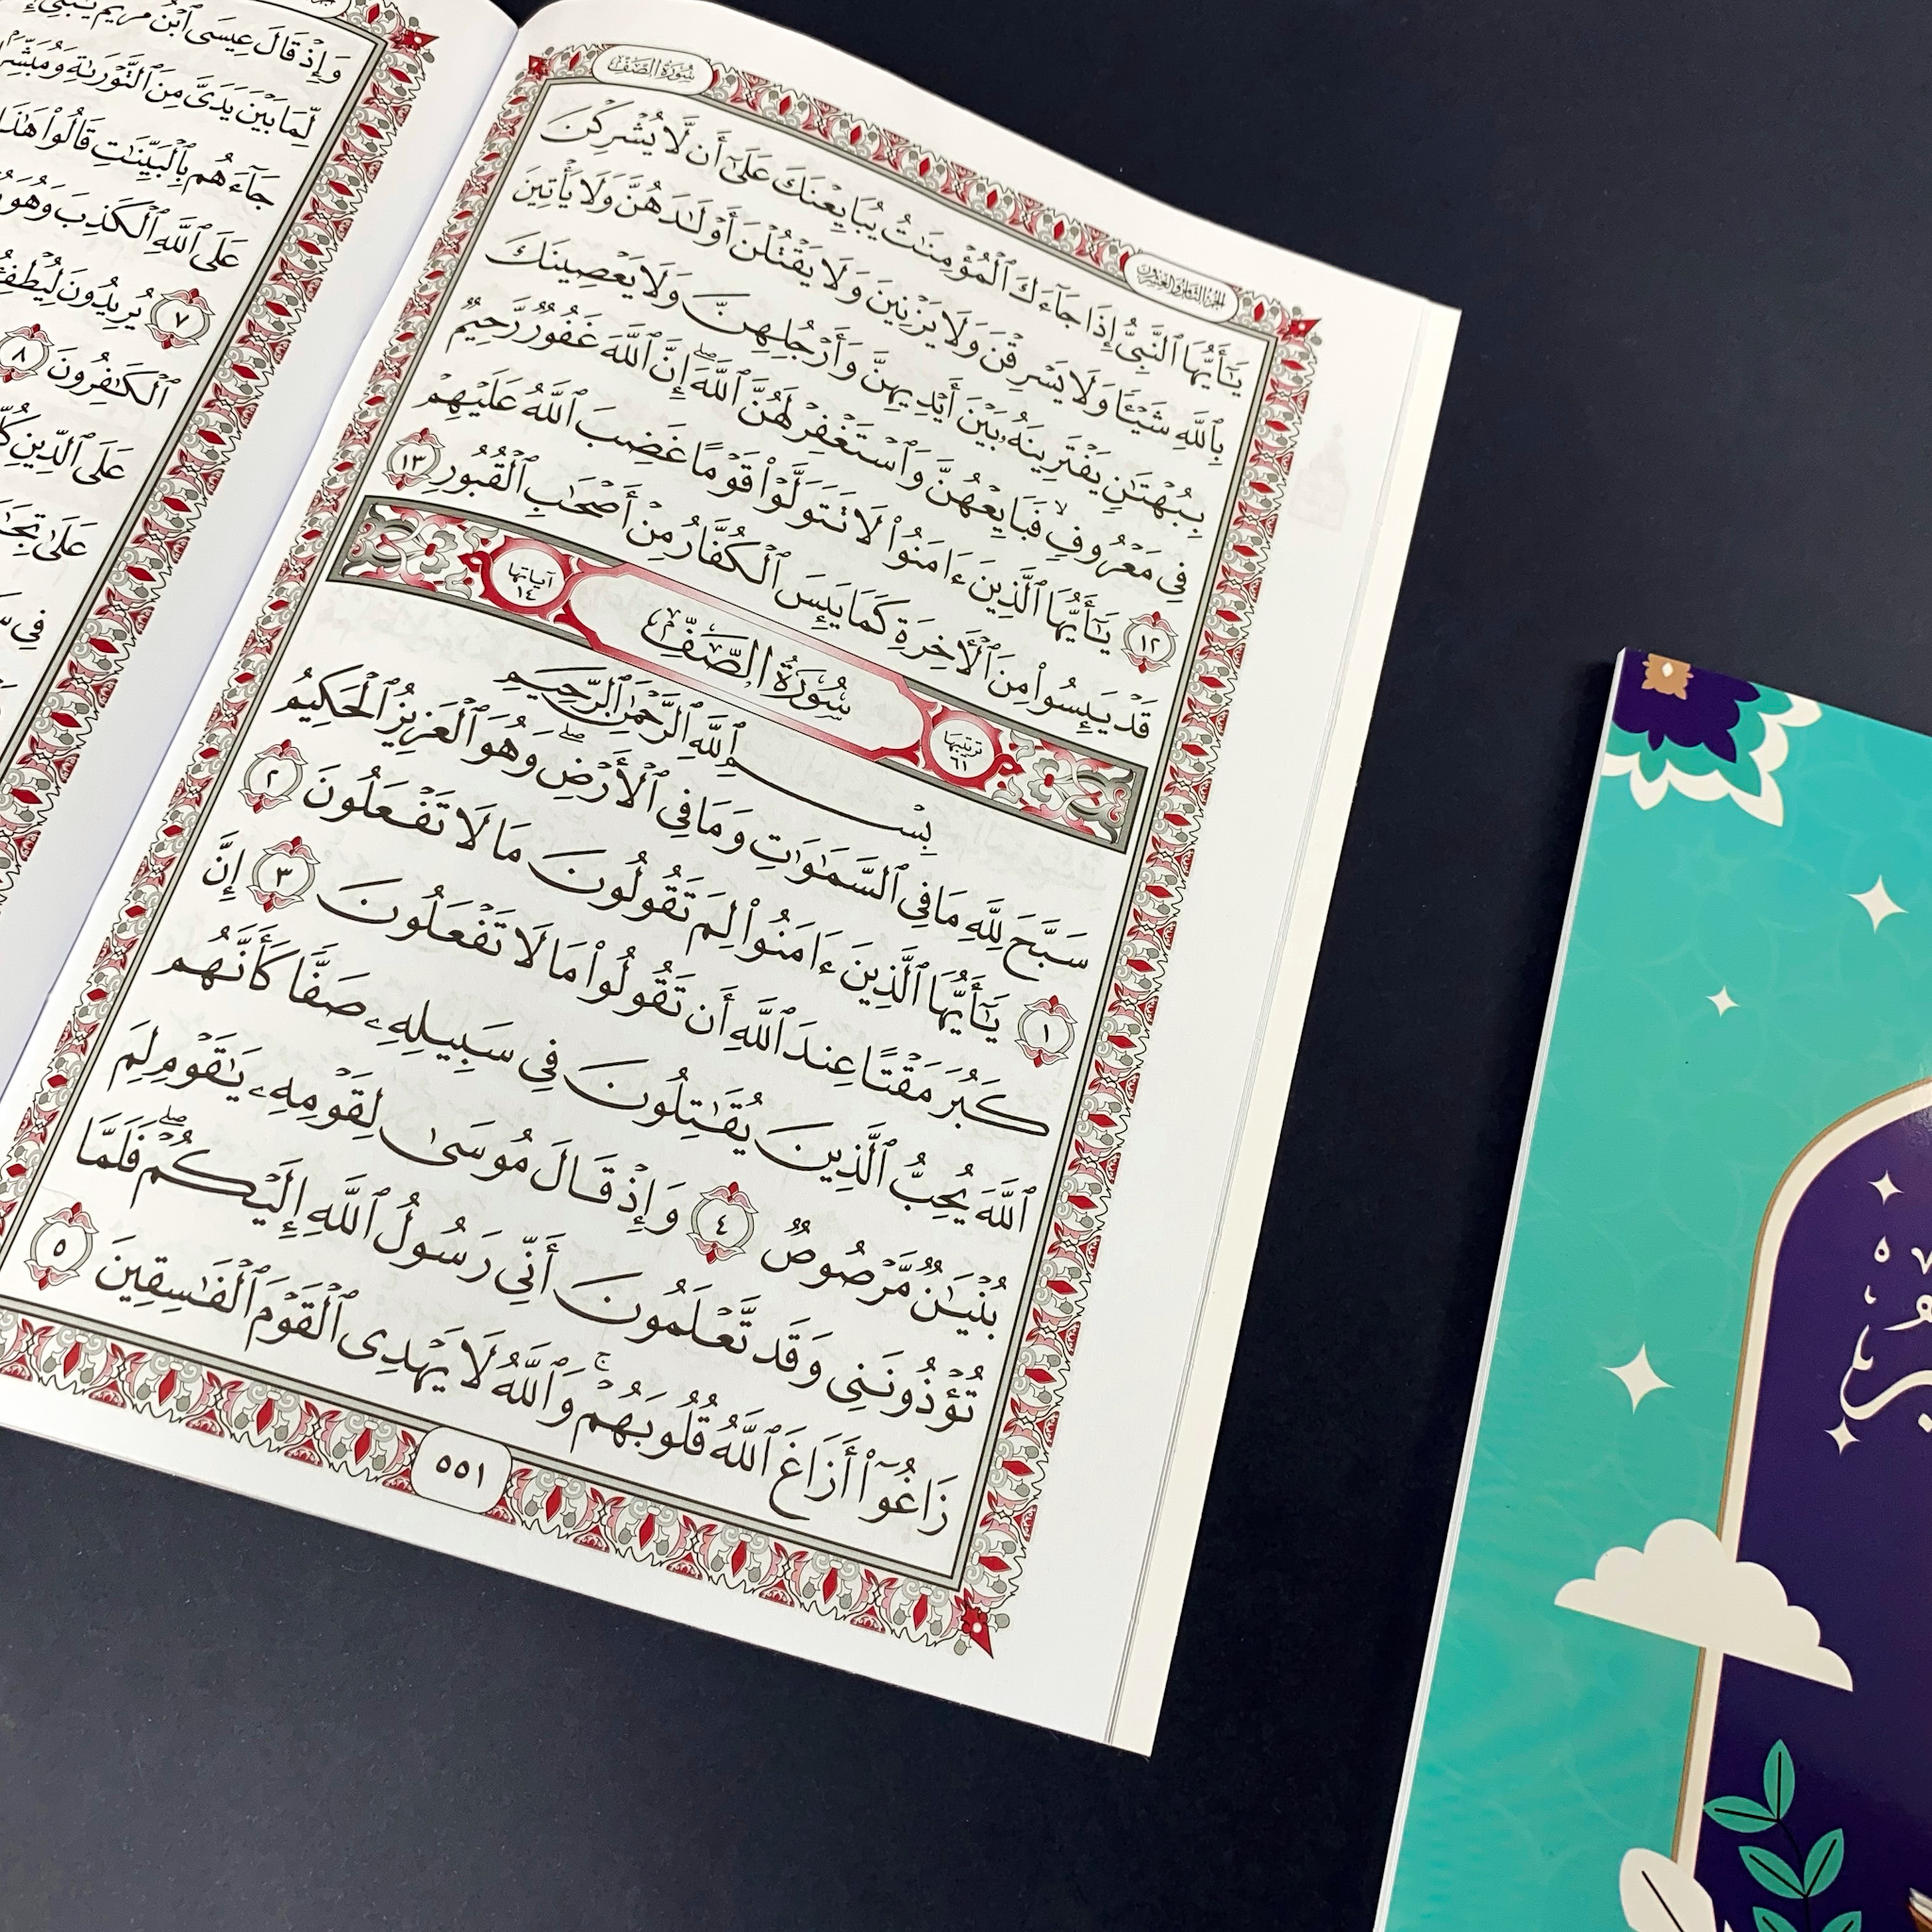 سُورَةُ الصَّفِّ
الجُزْءُ الثَّامِنُ وَالعِشْرُونَ
يَٰٓأَيُّهَا ٱلنَّبِىُّ إِذَا جَآءَكَ ٱلْمُؤْمِنَٰتُ يُبَايِعْنَكَ عَلَىٰٓ أَن لَّا يُشْرِكْنَ
بِٱللَّهِ شَيْـًٔا وَلَا يَسْرِقْنَ وَلَا يَزْنِينَ وَلَا يَقْتُلْنَ أَوْلَٰدَهُنَّ وَلَا يَأْتِينَ
بِبُهْتَٰنٍ يَفْتَرِينَهُۥ بَيْنَ أَيْدِيهِنَّ وَأَرْجُلِهِنَّ وَلَا يَعْصِينَكَ
فِى مَعْرُوفٍ ۙ فَبَايِعْهُنَّ وَٱسْتَغْفِرْ لَهُنَّ ٱللَّهَ ۖ إِنَّ ٱللَّهَ غَفُورٌ رَّحِيمٌ
١٢ يَٰٓأَيُّهَا ٱلَّذِينَ ءَامَنُوا۟ لَا تَتَوَلَّوْا۟ قَوْمًا غَضِبَ ٱللَّهُ عَلَيْهِمْ
قَدْ يَئِسُوا۟ مِنَ ٱلْـَٔاخِرَةِ كَمَا يَئِسَ ٱلْكُفَّارُ مِنْ أَصْحَٰبِ ٱلْقُبُورِ ١٣
ترتيبها ٦١
سُورَةُ الصَّفِّ
آياتها ١٤
بِسْمِ ٱللَّهِ ٱلرَّحْمَٰنِ ٱلرَّحِيمِ
سَبَّحَ لِلَّهِ مَا فِى ٱلسَّمَٰوَٰتِ وَمَا فِى ٱلْأَرْضِ ۖ وَهُوَ ٱلْعَزِيزُ ٱلْحَكِيمُ
١ يَٰٓأَيُّهَا ٱلَّذِينَ ءَامَنُوا۟ لِمَ تَقُولُونَ مَا لَا تَفْعَلُونَ ٢
كَبُرَ مَقْتًا عِندَ ٱللَّهِ أَن تَقُولُوا۟ مَا لَا تَفْعَلُونَ ٣ إِنَّ
ٱللَّهَ يُحِبُّ ٱلَّذِينَ يُقَٰتِلُونَ فِى سَبِيلِهِۦ صَفًّا كَأَنَّهُم
بُنْيَٰنٌ مَّرْصُوصٌ ٤ وَإِذْ قَالَ مُوسَىٰ لِقَوْمِهِۦ يَٰقَوْمِ لِمَ
تُؤْذُونَنِى وَقَد تَّعْلَمُونَ أَنِّى رَسُولُ ٱللَّهِ إِلَيْكُمْ ۖ فَلَمَّا
زَاغُوٓا۟ أَزَاغَ ٱللَّهُ قُلُوبَهُمْ ۚ وَٱللَّهُ لَا يَهْدِى ٱلْقَوْمَ ٱلْفَٰسِقِينَ ٥
٥٥١
وَإِذْ قَالَ عِيسَى ٱبْنُ مَرْيَمَ يَٰبَنِىٓ
لِّمَا بَيْنَ يَدَىَّ مِنَ ٱلتَّوْرَىٰةِ وَمُبَشِّرًۢا
جَآءَهُم بِٱلْبَيِّنَٰتِ قَالُوا۟ هَٰذَا
عَلَى ٱللَّهِ ٱلْكَذِبَ وَهُوَ
٧ يُرِيدُونَ
ٱلْكَٰفِرُونَ ٨
عَلَى ٱلدِّينِ
عَلَىٰ
فِى